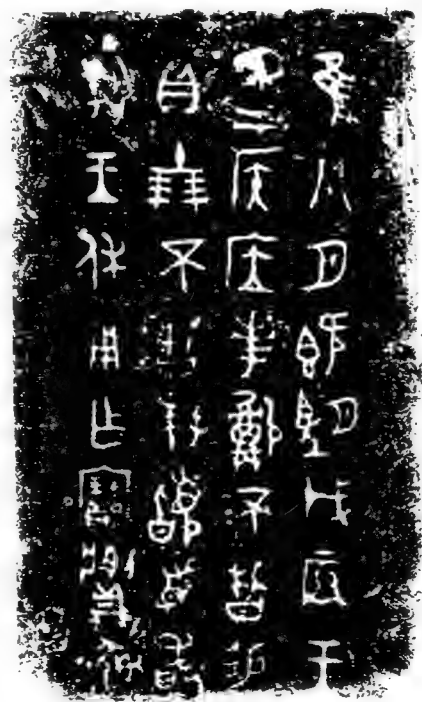 隹八月既望戊辰王
才上侯应𠦪祼不栺易
貝十朋不栺拜𩒨首
揚王休用乍寶𩰬彝